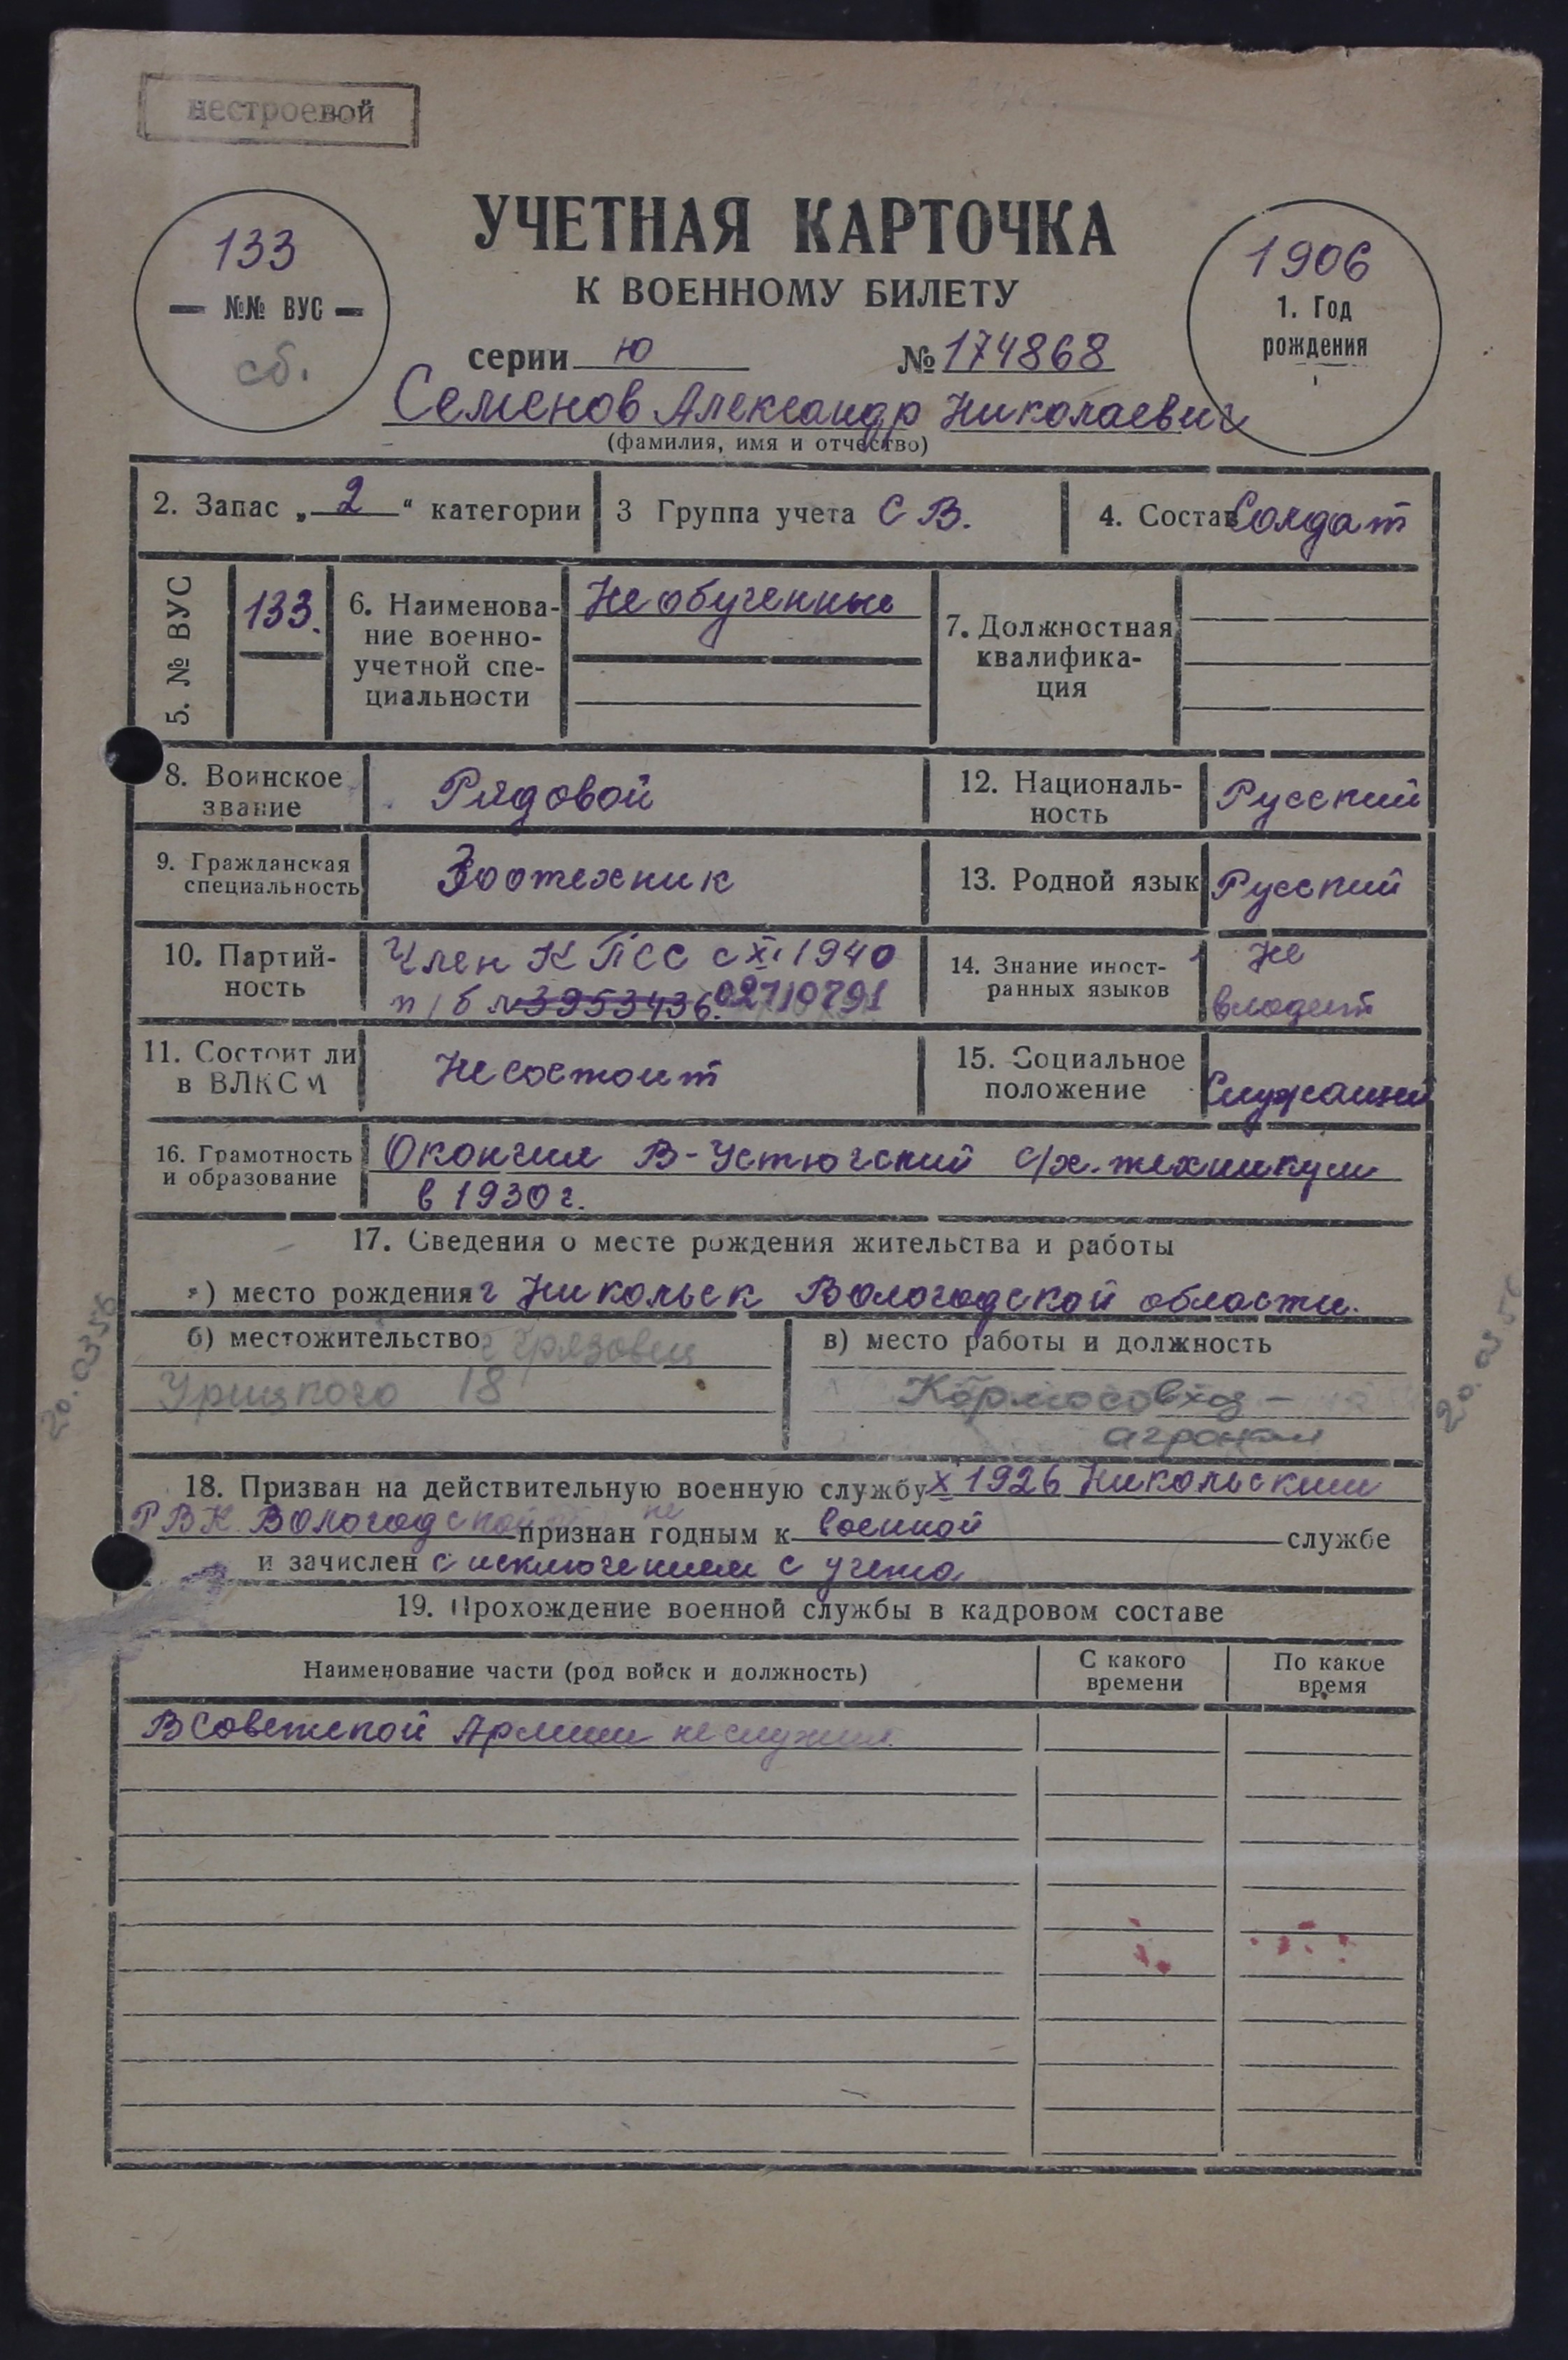 нестроевой
УЧЕТНАЯ КАРТОЧКА
К ВОЕННОМУ БИЛЕТУ
133
№№ ВУС
сб.
1906
1. Год
рождения
серии ю № 174868
Семенов Александр Николаевич
(фамилия, имя и отчество)
2. Запас „2“ категории
3 Группа учета СВ.
4. Состав Солдат
5. № ВУС
133.
6. Наименова-
ние военно-
учетной спе-
циальности
Необученные
7. Должностная
квалифика-
ция
8. Воинское
звание
Рядовой
12. Националь-
ность
Русский
9. Гражданская
специальность
Зоотехник
13. Родной язык
Русский
10. Партий-
ность
Член КПСС с XI 1940
п/б № 3953436. 02710791
14. Знание иност-
ранных языков
Не
владеет
11. Состоит ли
в ВЛКСМ
Не состоит
15. Социальное
положение
Служащий
16. Грамотность
и образование
Окончил В-Устюгский с/х. техникум
в 1930 г.
17. Сведения о месте рождения жительства и работы
а) место рождения г Никольск Вологодской области.
б) местожительство г Грязовец
Урицкого 18
в) место работы и должность
Кормосовхоз -
агроном
20.03.56
18. Призван на действительную военную службу X 1926 Никольским
РВК Вологодской признан не годным к военной службе
и зачислен с исключением с учета
19. Прохождение военной службы в кадровом составе
Наименование части (род войск и должность)
С какого
времени
По какое
время
В Советской Армии не служил